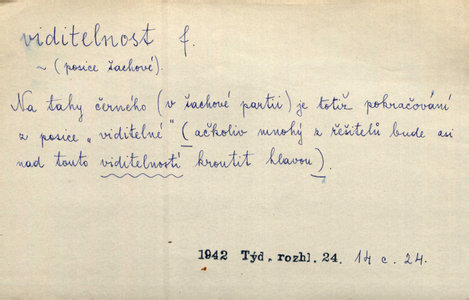 viditelnost f.
~ (posice šachové).
Na tahy černého (v šachové partii) je totiž pokračování
z posice „viditelné" (ačkoliv mnohý z řešitelů bude asi
nad touto viditelností kroutit hlavou).
1942 Týd. rozhl. 24. 14 c. 24.